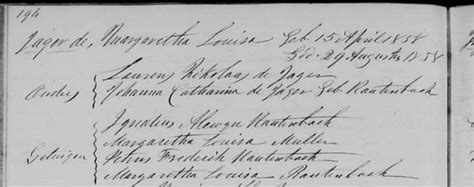 194
Jager de, Margaretha Louisa Geb. 15 April 1858
Ged. 29 Augusts 1858
Ouders
Laurens Nikolaas de Jager
Johanna Catharina de Jager Geb. Rautenbach
Getuigen
Ignatius Alewyn Rautenbach
Margaretha Louisa Muller
Petrus Frederik Rautenbach
Margaretha Louisa Rautenbach